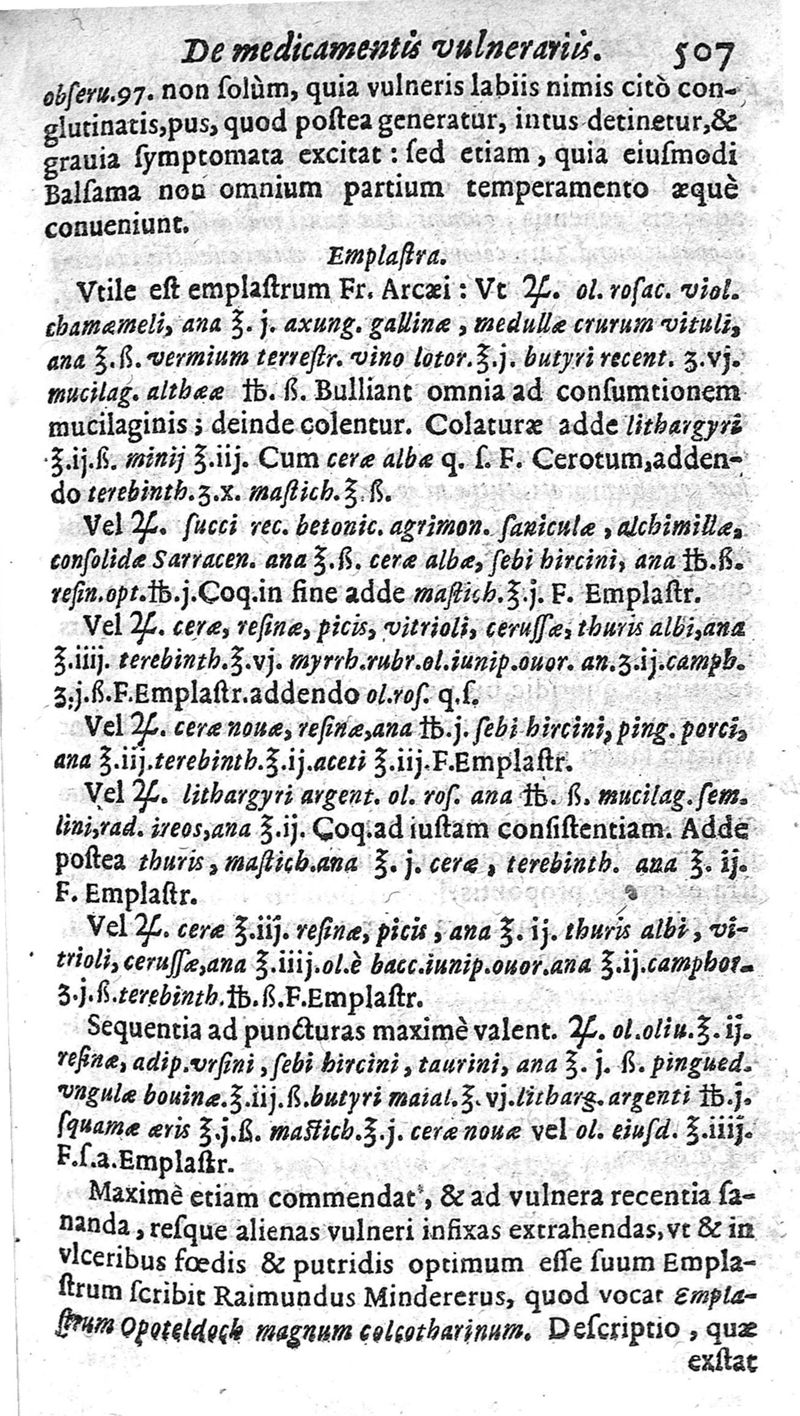 De medicamentis vulnerariis. 507
obſeru.97. non ſolùm, quia vulneris labiis nimis citò con-
glutinatis,pus, quod poſtea generatur, intus detinetur,&
grauia ſymptomata excitat : ſed etiam, quia eiuſmodi
Balſama non omnium partium temperamento æquè
conueniunt.
Emplaſtra.
Vtile eſt emplaſtrum Fr. Arcæi : Vt ℞. ol. roſac. viol.
chamæmeli, ana ℥. j. axung. gallinæ, medullæ crurum vituli,
ana ℥.ß. vermium terreſtr. vino lotor.℥.j. butyri recent. ʒ.vj.
mucilag. althææ ℔. ß. Bulliant omnia ad conſumtionem
mucilaginis; deinde colentur. Colaturæ adde lithargyri
℥.ij.ß. minij ℥.iij. Cum ceræ albæ q. ſ. F. Cerotum,adden-
do terebinth.ʒ.x. maſtich.℥.ß.
Vel ℞. ſucci rec. betonic. agrimon. ſaniculæ, alchimillæ,
conſolidæ Sarracen. ana ℥.ß. ceræ albæ, ſebi hircini, ana ℔.ß.
reſin.opt.℔.j.Coq.in fine adde maſtich.℥.j. F. Emplaſtr.
Vel ℞. ceræ, reſinæ, picis, vitrioli, ceruſſæ, thuris albi,ana
℥.iiij. terebinth.℥.vj. myrrh.rubr.ol.iunip.ouor. an.ʒ.ij.camph.
ʒ.j.ß.F.Emplaſtr.addendo ol.roſ. q.ſ.
Vel ℞. ceræ nouæ, reſinæ,ana ℔.j. ſebi hircini, ping. porci,
ana ℥.iij.terebinth.℥.ij.aceti ℥.iij.F.Emplaſtr.
Vel ℞. lithargyri argent. ol. roſ. ana ℔. ß. mucilag. ſem.
lini,rad. ireos,ana ℥.ij. Coq.ad iuſtam conſiſtentiam. Adde
poſtea thuris, maſtich.ana ℥. j. ceræ, terebinth. ana ℥. ij.
F. Emplaſtr.
Vel ℞. ceræ ℥.iij. reſinæ, picis, ana ℥. ij. thuris albi, vi-
trioli, ceruſſæ,ana ℥.iiij.ol.è bacc.iunip.ouor.ana ℥.ij.camphor.
ʒ.j.ß.terebinth.℔.ß.F.Emplaſtr.
Sequentia ad puncturas maximè valent. ℞. ol.oliu.℥. ij.
reſinæ, adip.vrſini, ſebi hircini, taurini, ana ℥. j. ß. pingued.
vngulæ bouinæ.℥.iij.ß.butyri maial.℥.vj.litharg.argenti ℔.j.
ſquamæ æris ℥.j.ß. maſtich.℥.j. ceræ nouæ vel ol. eiuſd. ℥.iiij.
F.ſ.a.Emplaſtr.
Maximè etiam commendat', & ad vulnera recentia ſa-
nanda, reſque alienas vulneri infixas extrahendas, vt & in
vlceribus fœdis & putridis optimum eſſe ſuum Empla-
ſtrum ſcribit Raimundus Mindererus, quod vocat Empla-
ſtrum Opoteldoch magnum colcotharinum. Deſcriptio, quæ
exſtat